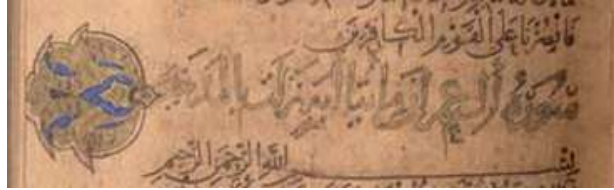 فانصرنا على القوم الكافرين
سورة آل عمران مائتا آية نزلت بالمدينة
بسم الله الرحمن الرحيم